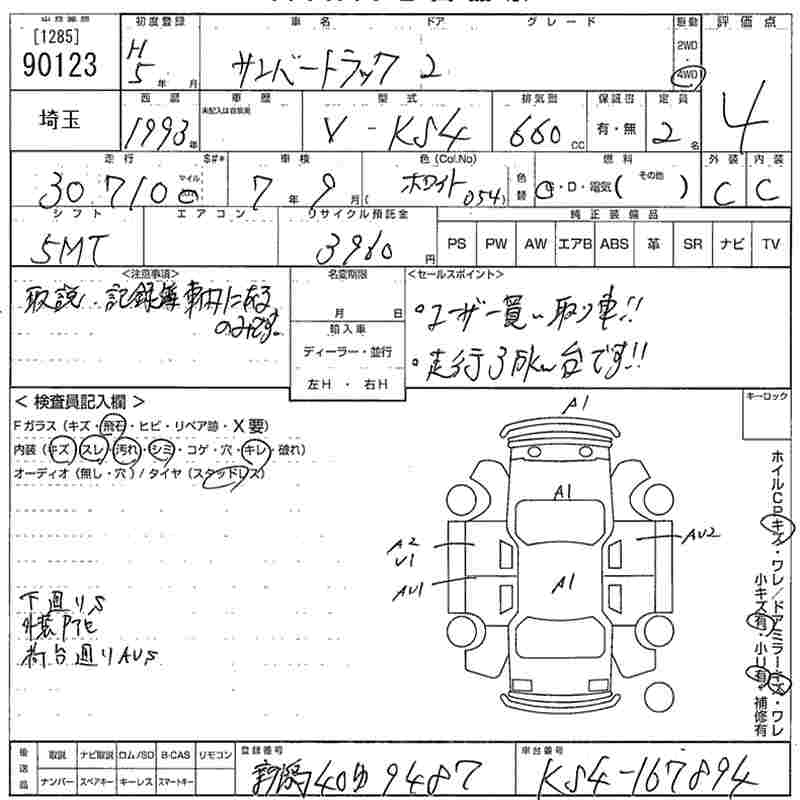 [1285]
90123
初度登録 車名 ドア グレード 駆動 評価点
H5年 月 サンバートラック 2 2WD 4WD 4
埼玉
西暦 車歴 型式 排気量 保証書 定員
1993年 未記入は自家用 V-KS4 660cc 有・無 2名
走行 S#* 車検 色(Col.No) 燃料 外装 内装
30710 マイル km 7年9月( ホワイト 054) 色替 G・D・電気( その他 ) C C
シフト エアコン リサイクル預託金 純正装備品
5MT 3960円 PS PW AW エアB ABS 革 SR ナビ TV
<注意事項> 名変期限 <セールスポイント>
取説、記録簿車内にある
のみです。
月 日
輸入車
ディーラー・並行
左H・右H
。ユーザー買い取り車!!
。走行3万km台です!!
< 検査員記入欄 > キーロック
Fガラス(キズ・飛石・ヒビ・リペア跡・X要)
内装(キズ・スレ・汚れ・シミ・コゲ・穴・キレ・破れ)
オーディオ(無し・穴)/タイヤ(スタッドレス)
A1
A1
A2
U1
AU2
AU1
A1
下廻りS
外装PTヒ
荷台廻りAUS
ホイルCPキズ・ワレ/ドアミラーキズ・ワレ
小キズ有・小U有・補修有
後送品 取説 ナビ取説 ロム/SD B-CAS リモコン
ナンバー スペアキー キーレス スマートキー
登録番号 車台番号
新潟40ゆ9487 KS4-167894